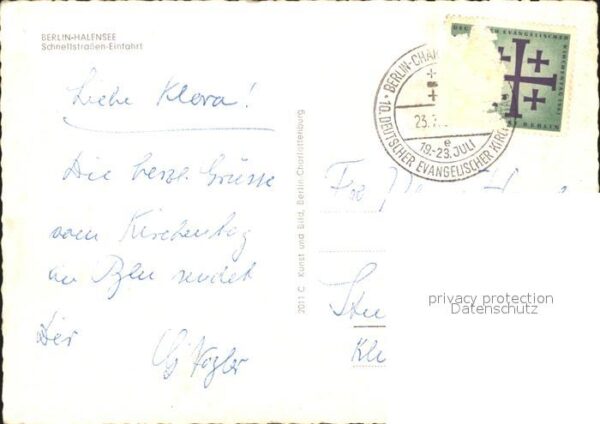 BERLIN-HALENSEE
Schnellstraßen-Einfahrt
Liebe Klara!
Die herzl. Grüsse
vom Kirchentag
in Bln sendet
Dir
Vogler
2011 C Kunst und Bild, Berlin-Charlottenburg
BERLIN-CHAR
10. DEUTSCHER EVANGELISCHER KIRCH
23.7.
e
19-23. JULI
EVANGELISCHER
BERLIN
privacy protection
Datenschutz